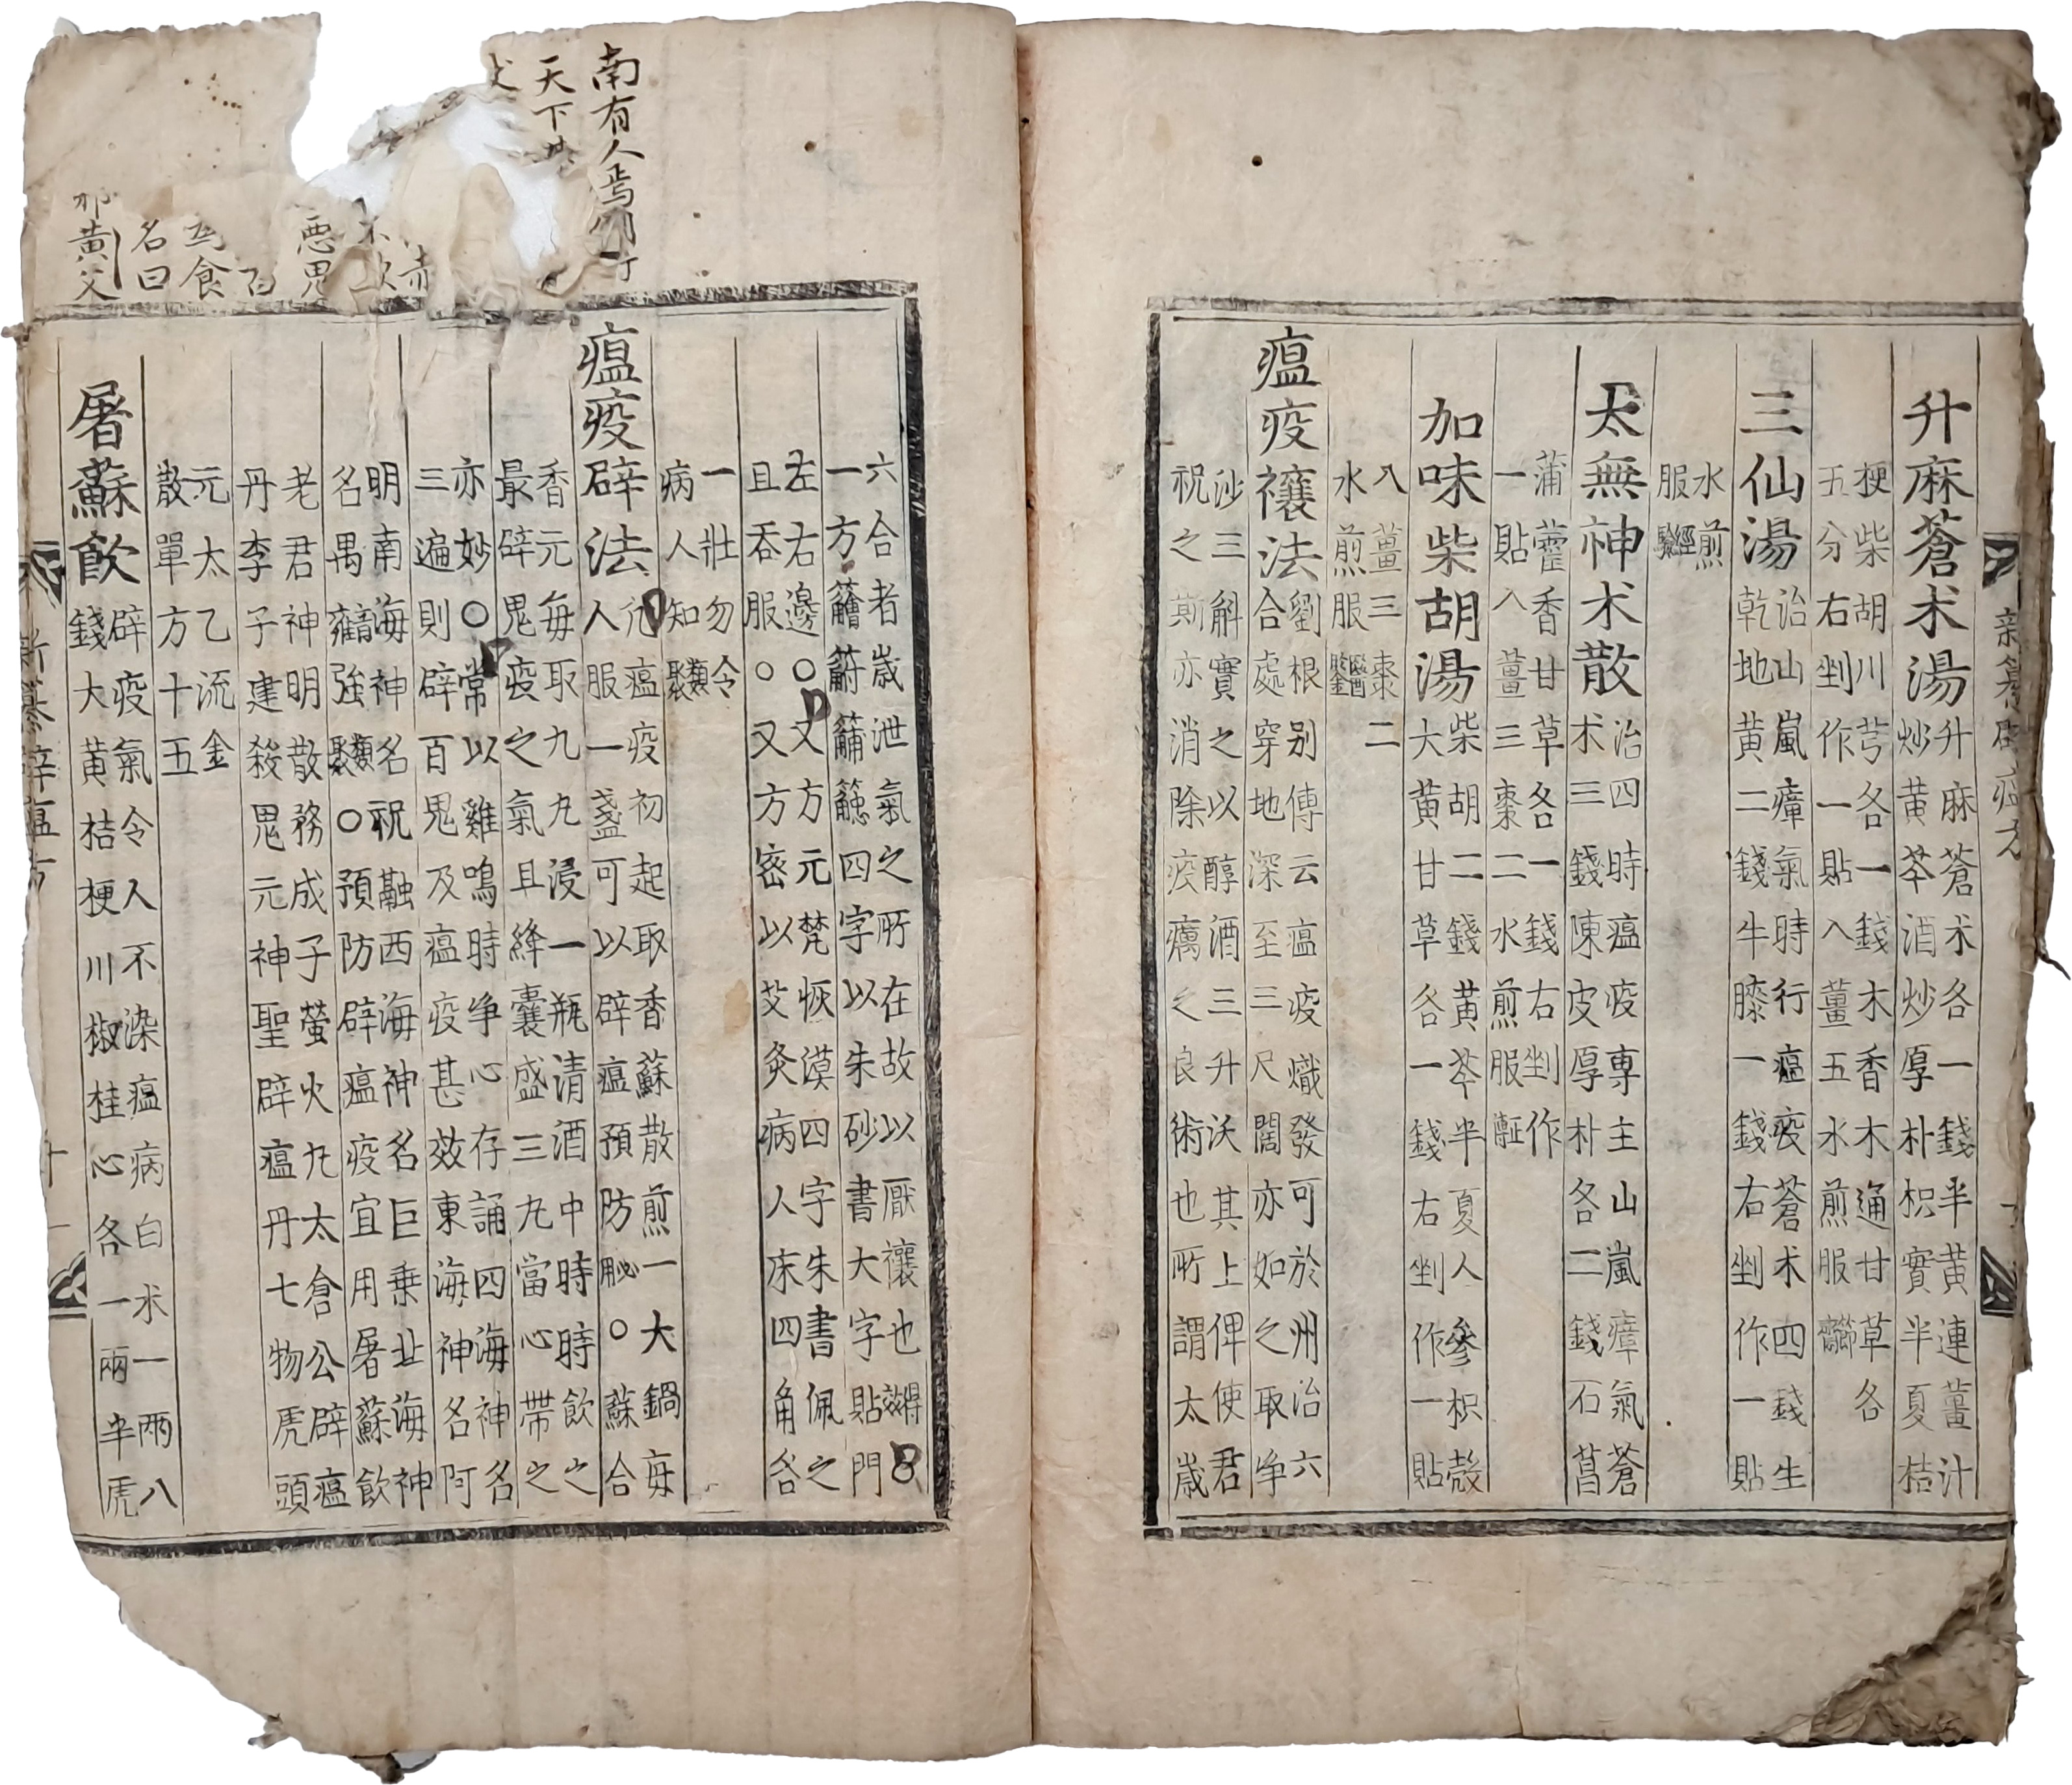 升麻蒼朮湯
升麻蒼朮各一錢半黃連薑汁
炒黃芩酒炒厚朴枳實半夏桔
梗柴胡川芎各一錢木香木通甘草各
五分右剉作一貼入薑五水煎服
三仙湯
治山嵐瘴氣時行瘟疫蒼朮四錢生
乾地黃二錢牛膝一錢右剉作一貼
水煎
服經驗
太無神朮散
治四時瘟疫専主山嵐瘴氣蒼
朮三錢陳皮厚朴各二錢石菖
蒲藿香甘草各一錢右剉作
一貼入薑三棗二水煎服
加味柴胡湯
柴胡二錢黃芩半夏人參枳殼
大黃甘草各一錢右剉作一貼
入薑三棗二
水煎服醫鑑
瘟疫禳法
劉根別傳云瘟疫熾發可於州治六
合處穿地深至三尺闊亦如之取净
沙三斛實之以醇酒三升沃其上俾使君
祝之斯亦消除疫癘之良術也所謂太歲
南有人焉
天下
赤
惡鬼
為食
名曰
黃父
六合者歲泄氣之所在故以厭禳也得效
一方四字以朱砂書大字貼門
左右邊○又方元梵恢漠四字朱書佩之
且吞服○又方密以艾灸病人床四角各
一壯勿令
病人知類聚
瘟疫辟法
凡瘟疫初起取香蘇散煎一大鍋每
人服一盞可以辟瘟預防必用○蘇合
香元每取九丸浸一瓶清酒中時時飲之
最辟鬼疫之氣且絳囊盛三丸當心帶之
亦妙○常以雞鳴時争心存誦四海神名
三遍則辟百鬼及瘟疫甚效東海神名阿
明南海神名祝融西海神名巨乗北海神
名禺強類聚○預防辟瘟疫宜用屠蘇飲
老君神明散務成子螢火丸太倉公辟瘟
丹李子建殺鬼元神聖辟瘟丹七物虎頭
元太乙流金
散單方十五
屠蘇飲
辟疫氣令人不染瘟病白朮一兩八
錢大黃桔梗川椒桂心各一兩半虎